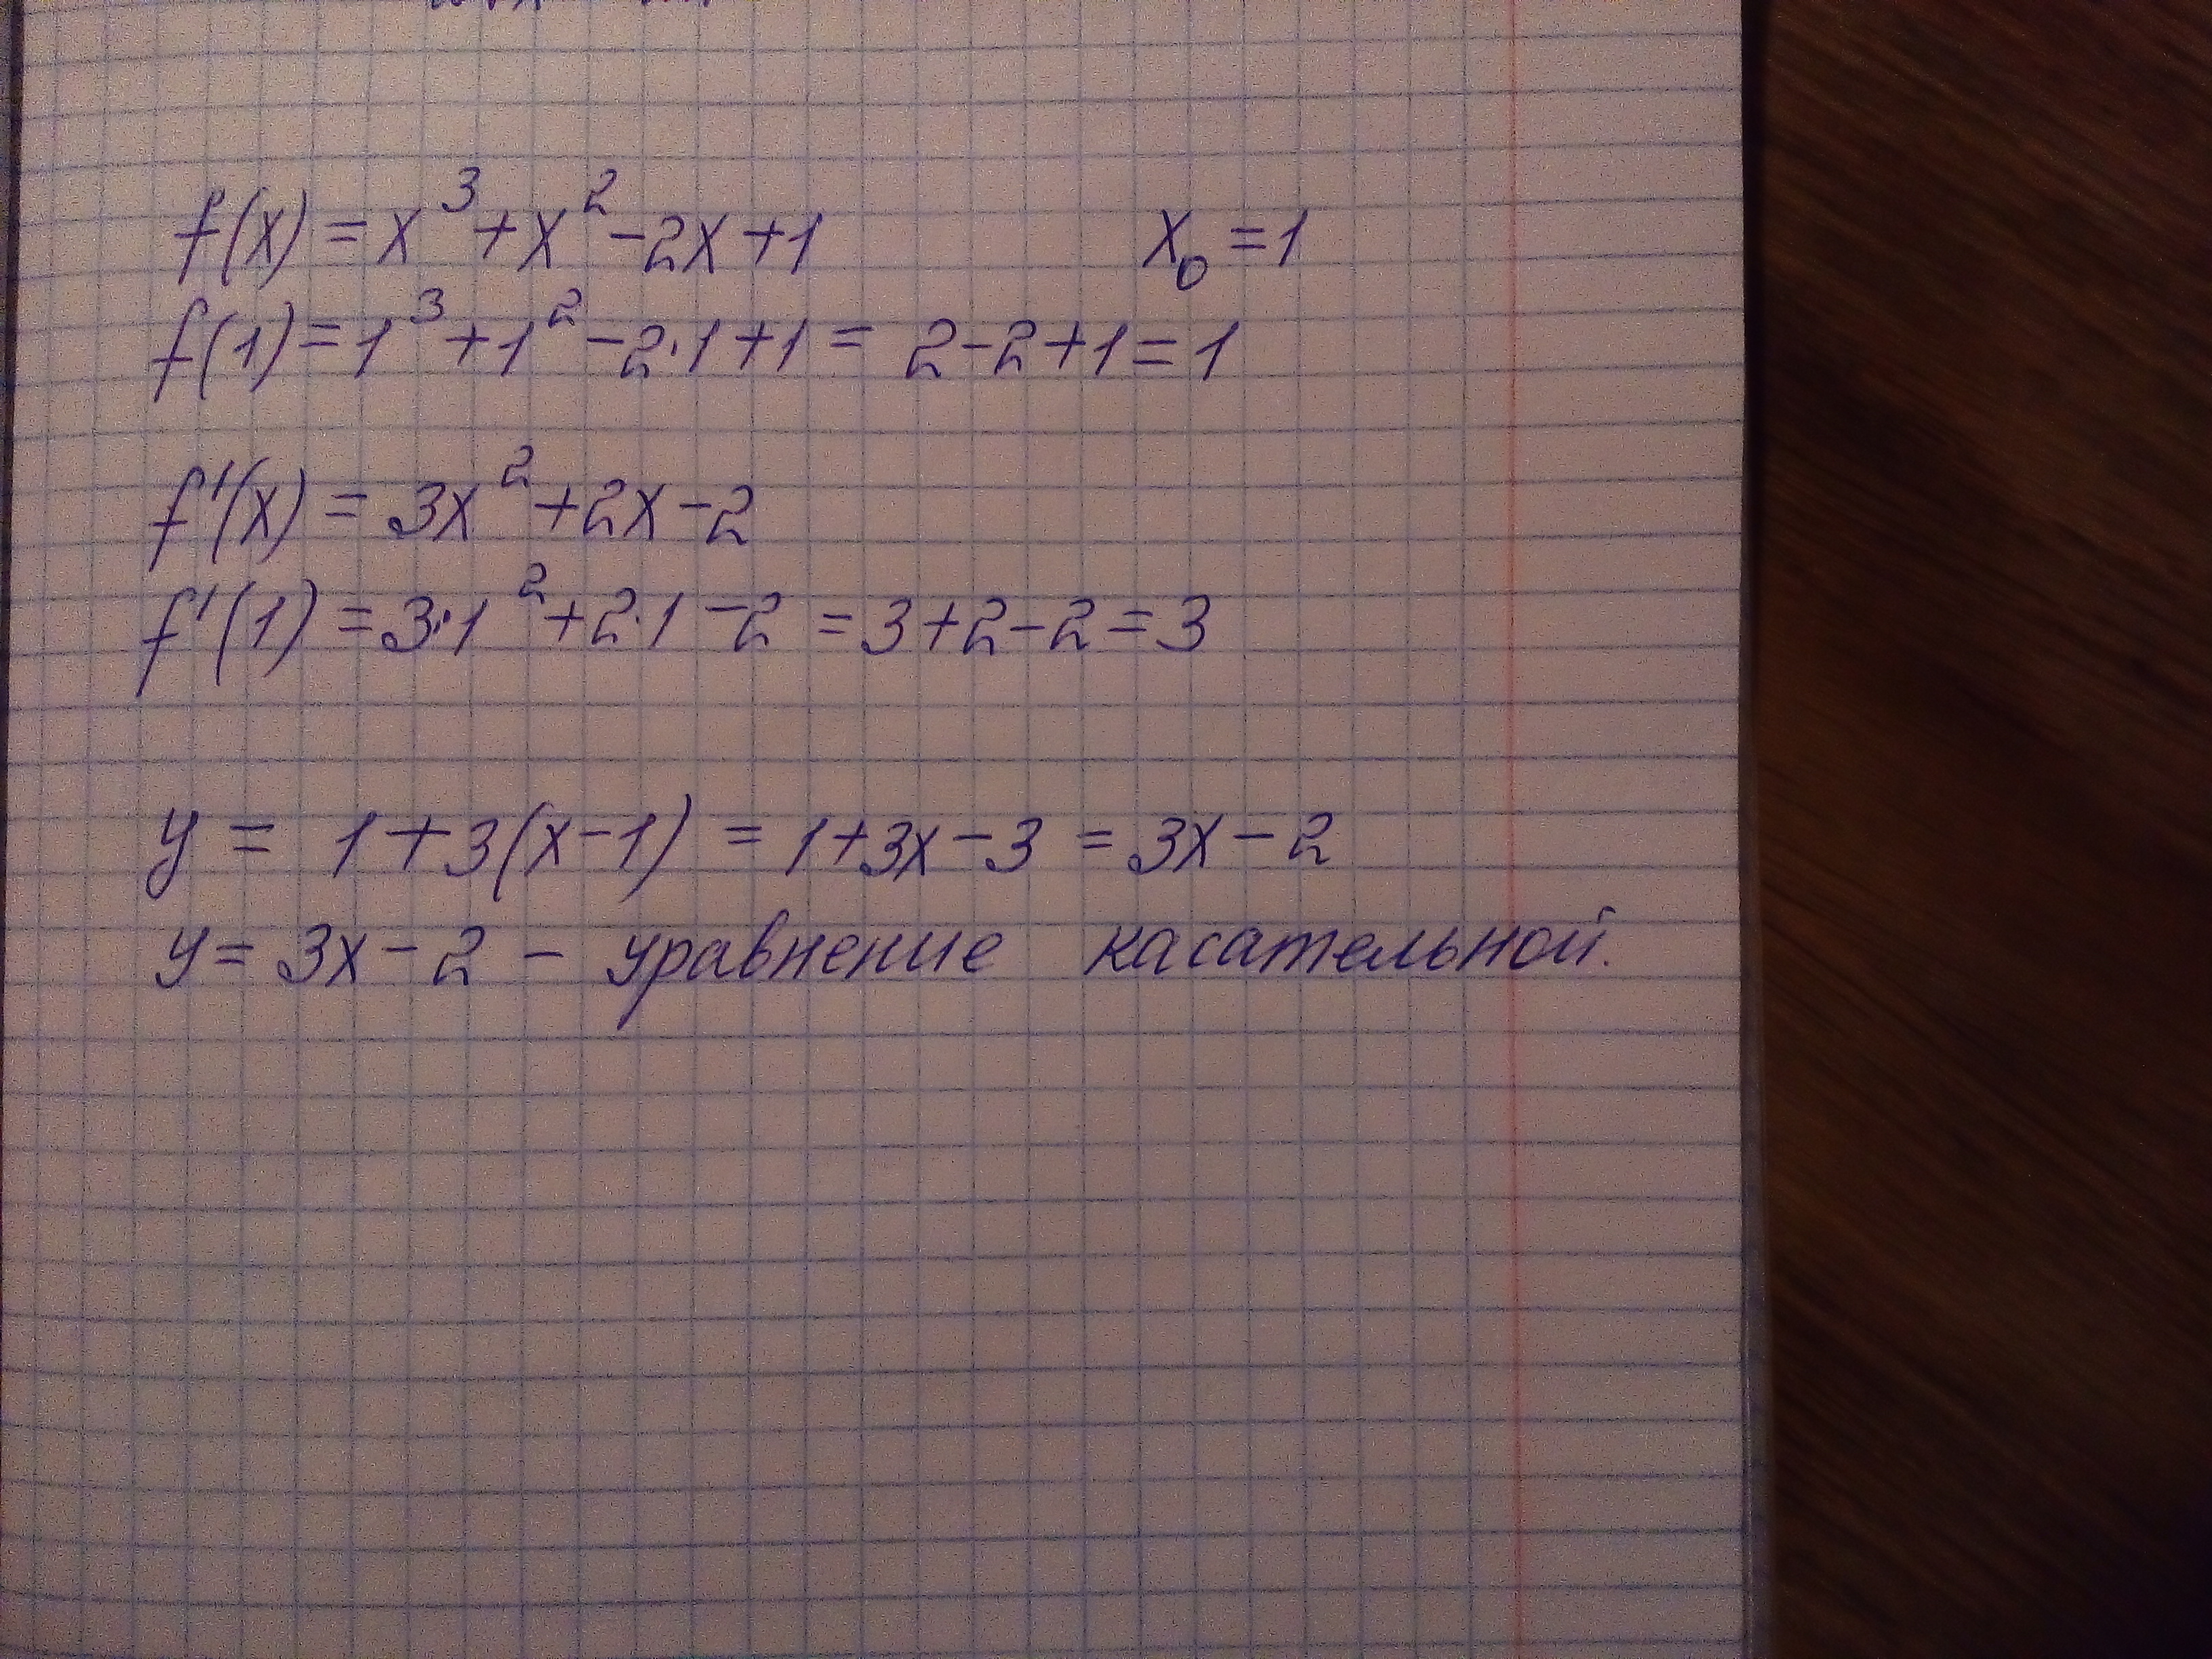 f(x) = x³ + x² - 2x + 1 x₀ = 1
f(1) = 1³ + 1² - 2·1 + 1 = 2 - 2 + 1 = 1
f'(x) = 3x² + 2x - 2
f'(1) = 3·1² + 2·1 - 2 = 3 + 2 - 2 = 3
y = 1 + 3(x - 1) = 1 + 3x - 3 = 3x - 2
y = 3x - 2 - уравнение касательной.